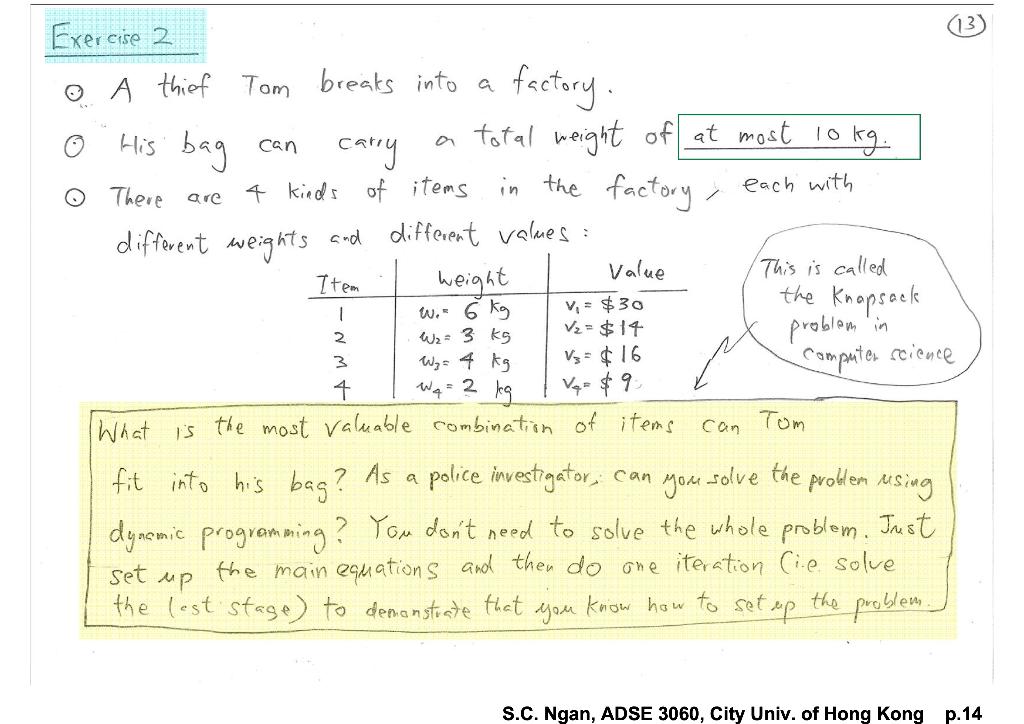 Exercise 2
13
A thief Tom breaks into a factory.
His bag can carry a total weight of at most 10 kg.
There are 4 kinds of items in the factory, each with
different weights and different values :
Item weight Value
1 w₁ = 6 kg v₁ = $30
2 w₂ = 3 kg v₂ = $14
3 w₃ = 4 kg v₃ = $16
4 w₄ = 2 kg v₄ = $9
This is called
the Knapsack
problem in
computer science
What is the most valuable combination of items can Tom
fit into his bag? As a police investigator, can you solve the problem using
dynamic programming? You don't need to solve the whole problem. Just
set up the main equations and then do one iteration (i.e. solve
the last stage) to demonstrate that you know how to set up the problem.
S.C. Ngan, ADSE 3060, City Univ. of Hong Kong p.14